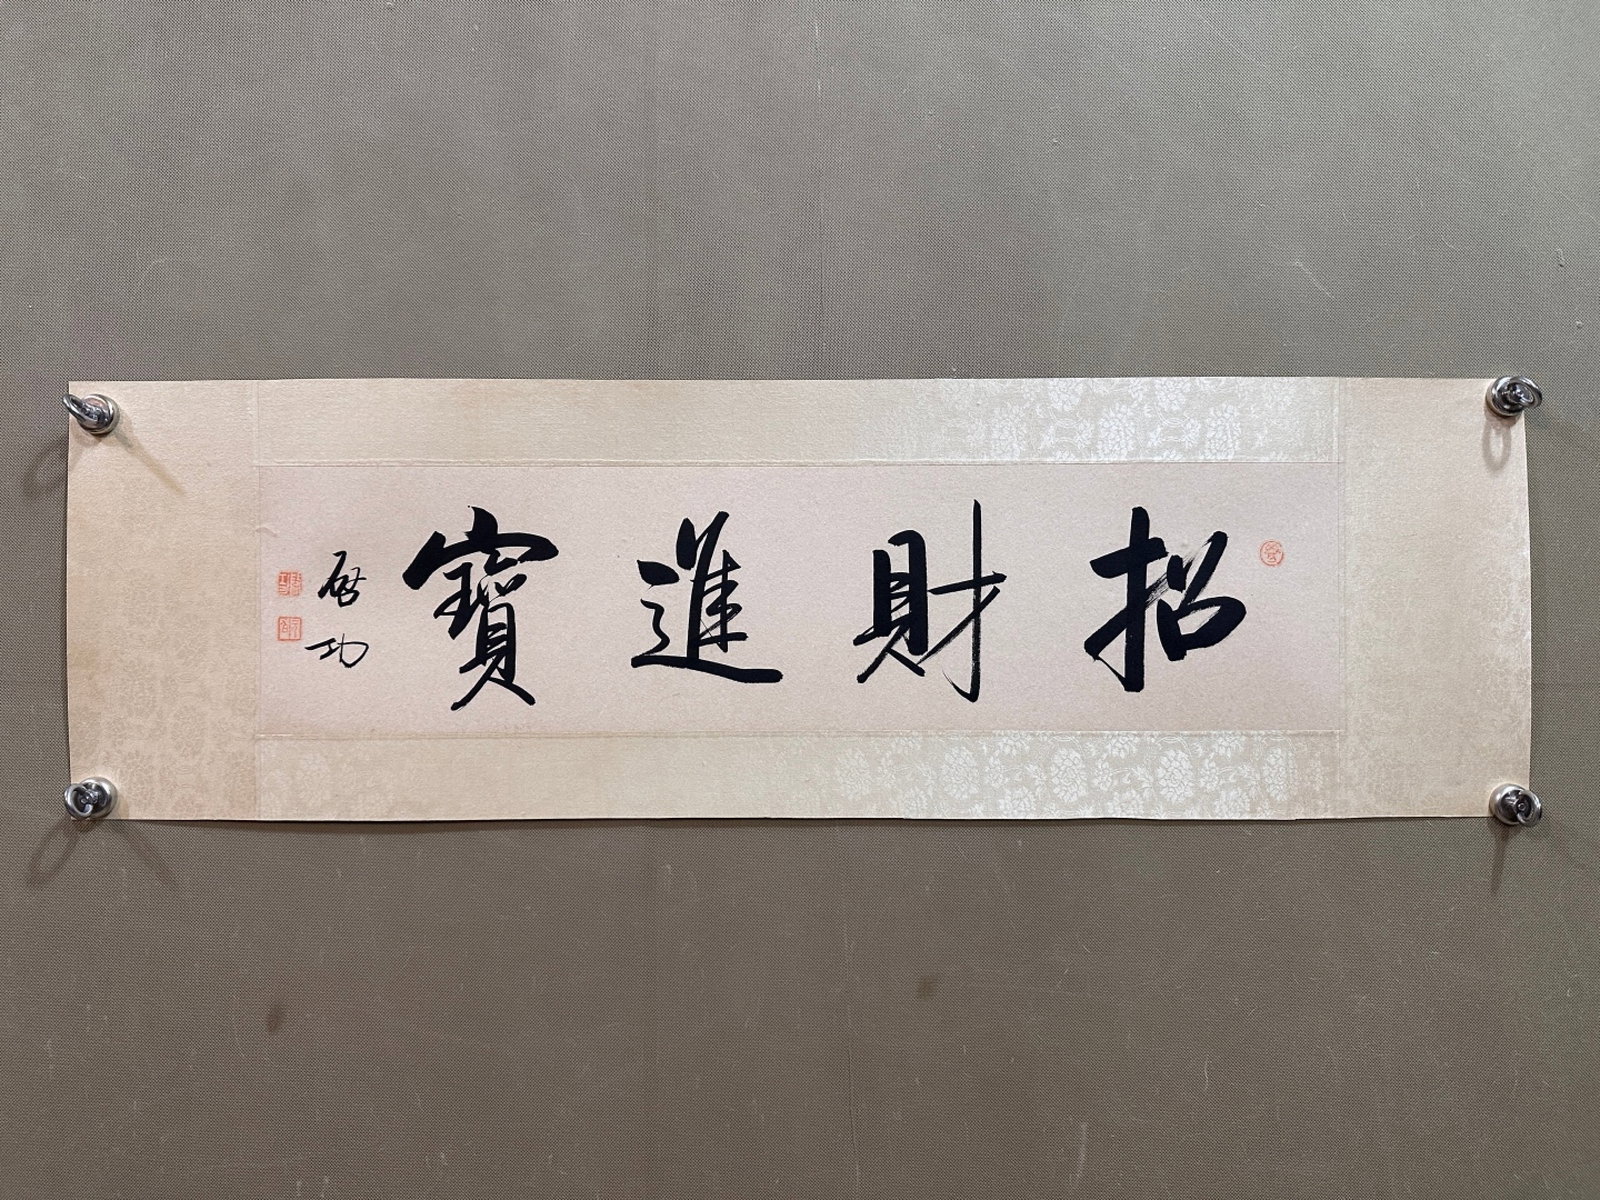 招財進寶
啓功